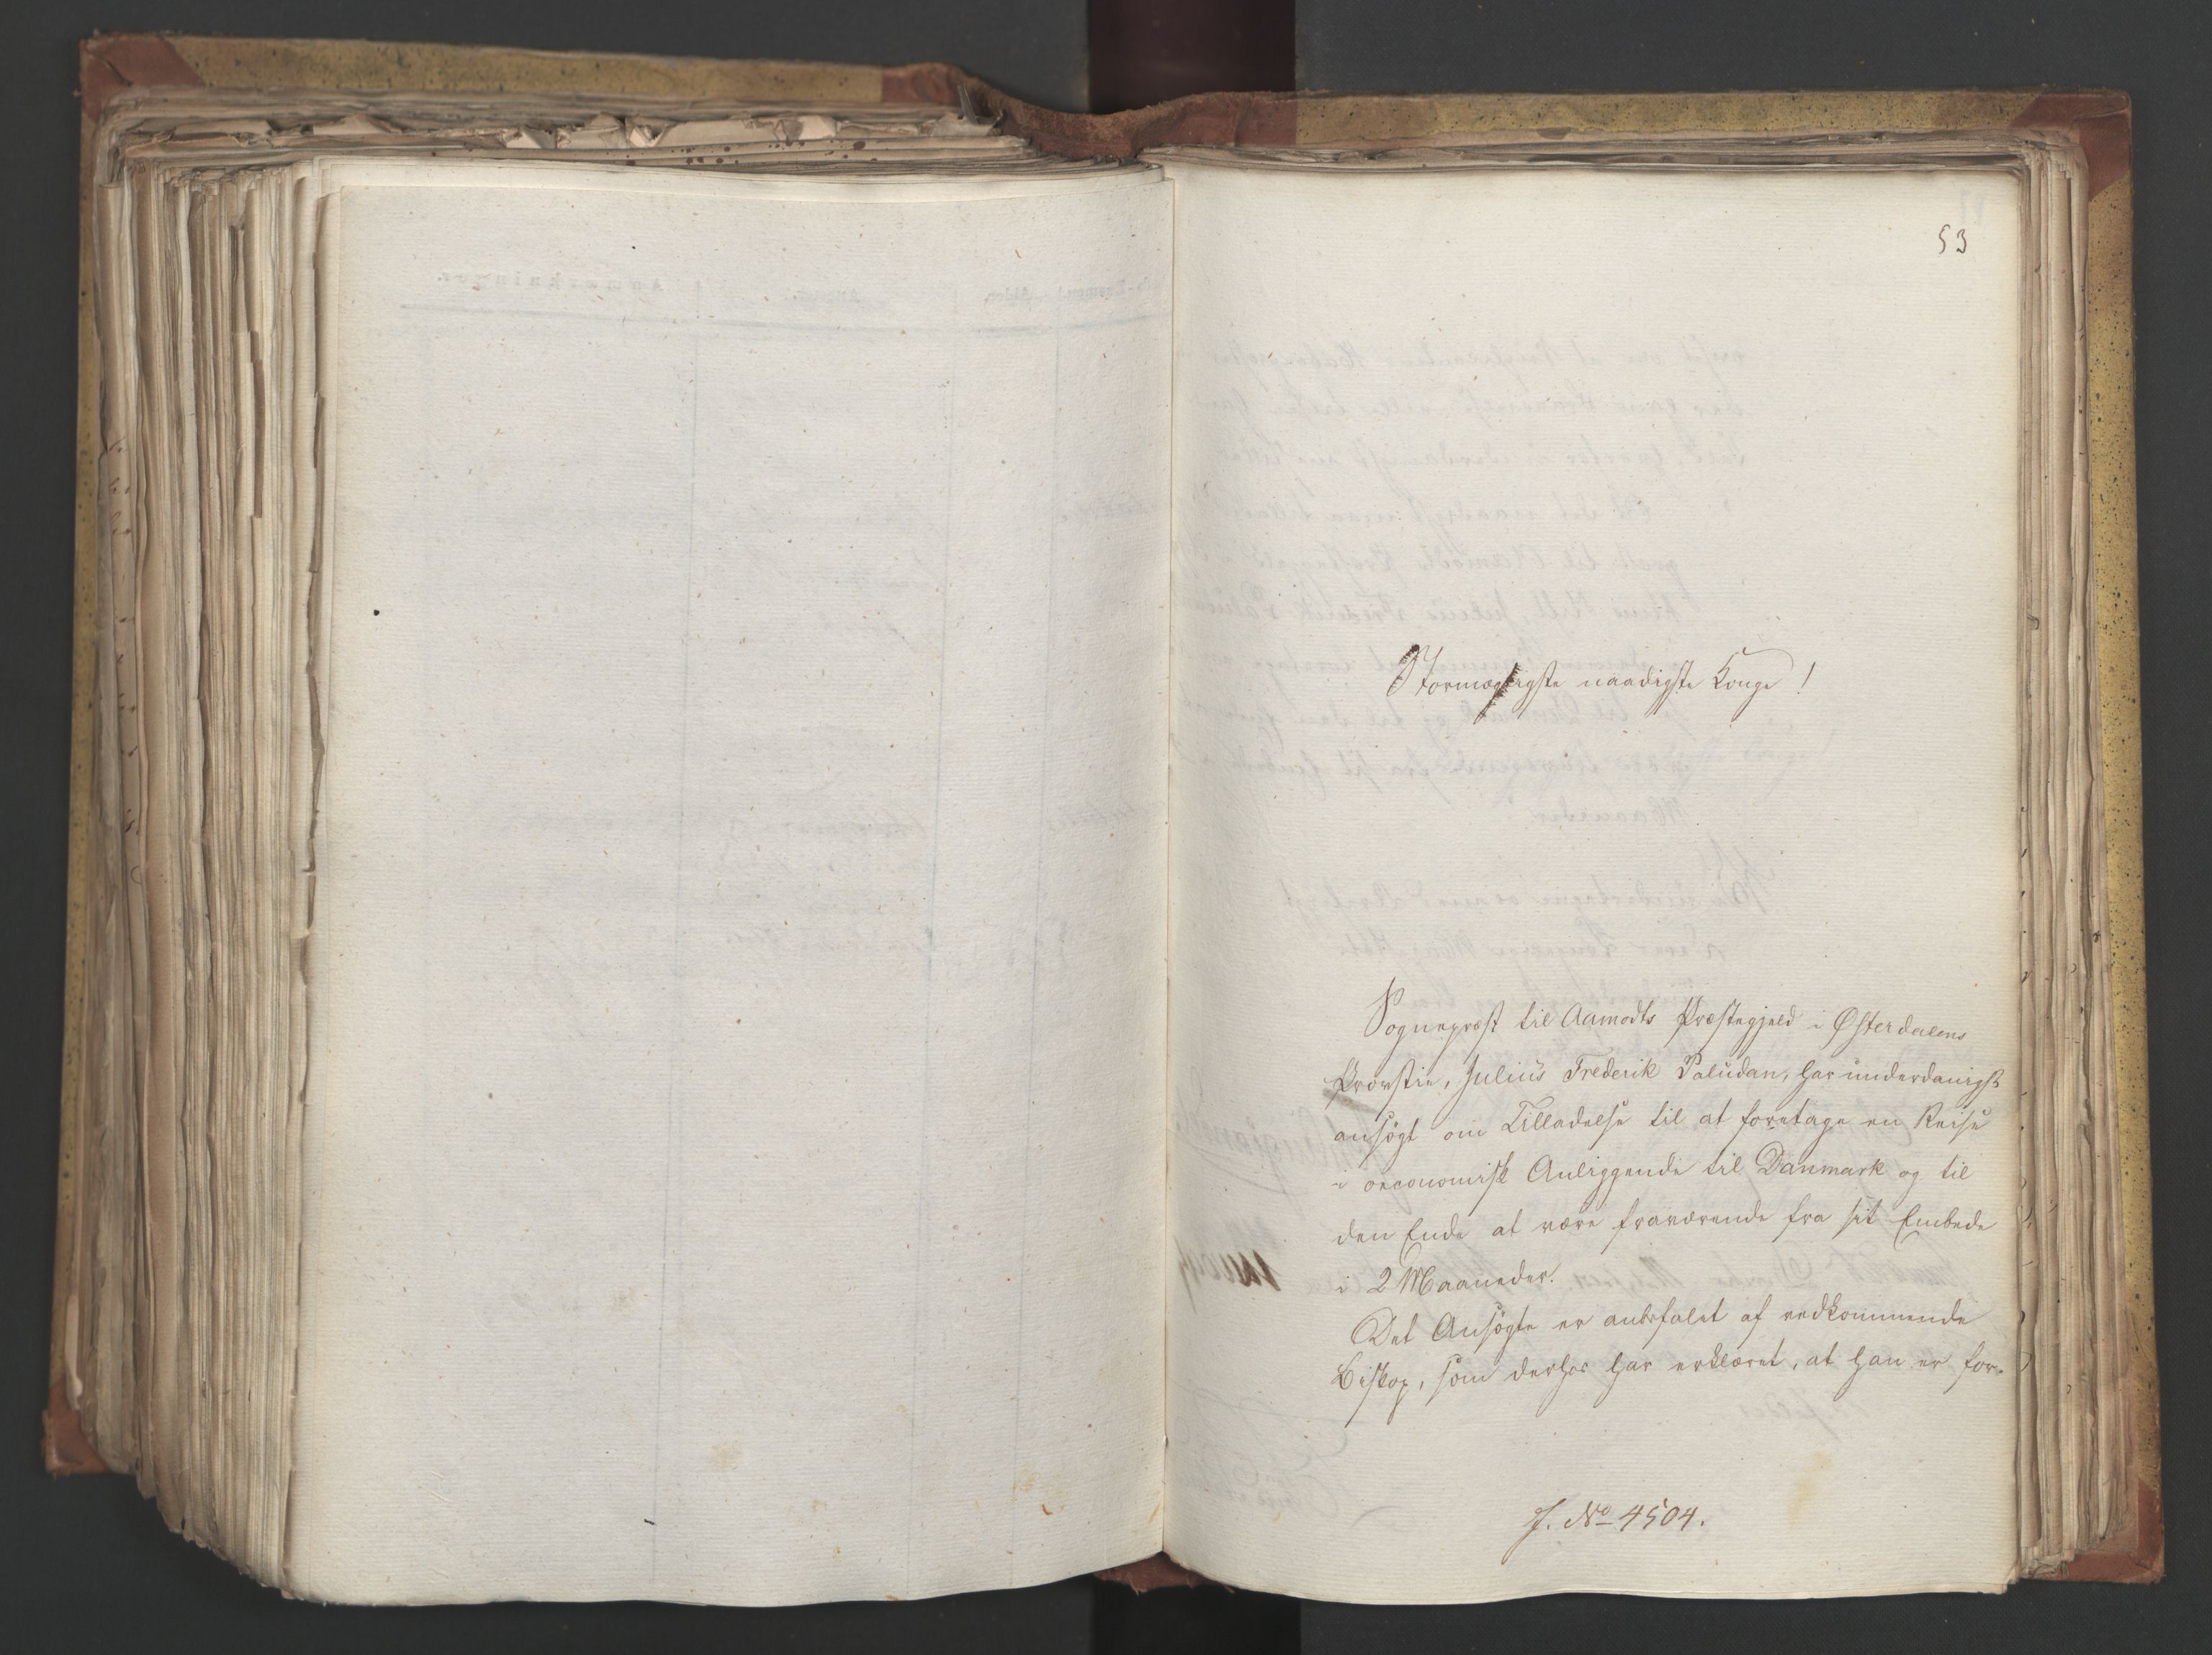 53
Stormægtigste naadigste Konge!
Sognepræst til Aamodts Præstegjeld i Østerdalens
Provstie, Julius Frederik Paludan, har underdanigst
ansøgt om Tilladelse til at foretage en Reise
i oeconomisk Anliggende til Danmark og til
den Ende at være fraværende fra sit Embede
i 2 Maaneder.
Det Ansøgte er anbefalet af vedkommende
Biskop, som derhos har erklæret, at han er for-
J. No 4504.